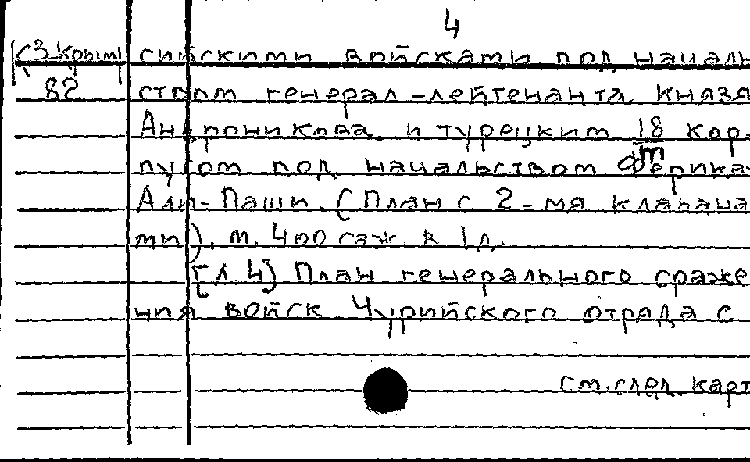 4
(3. Крым) сийскими войсками под началь
82 ством генерал-лейтенанта князя
Андроникова и турецким 18 т кор-
пусом под начальством Ферика
Али-Паши. (План с 2-мя клапана
ми). м. 400 саж. в 1 д.
[л. 4] План генерального сраже
ния войск Чурийского отряда с
см. след. карт